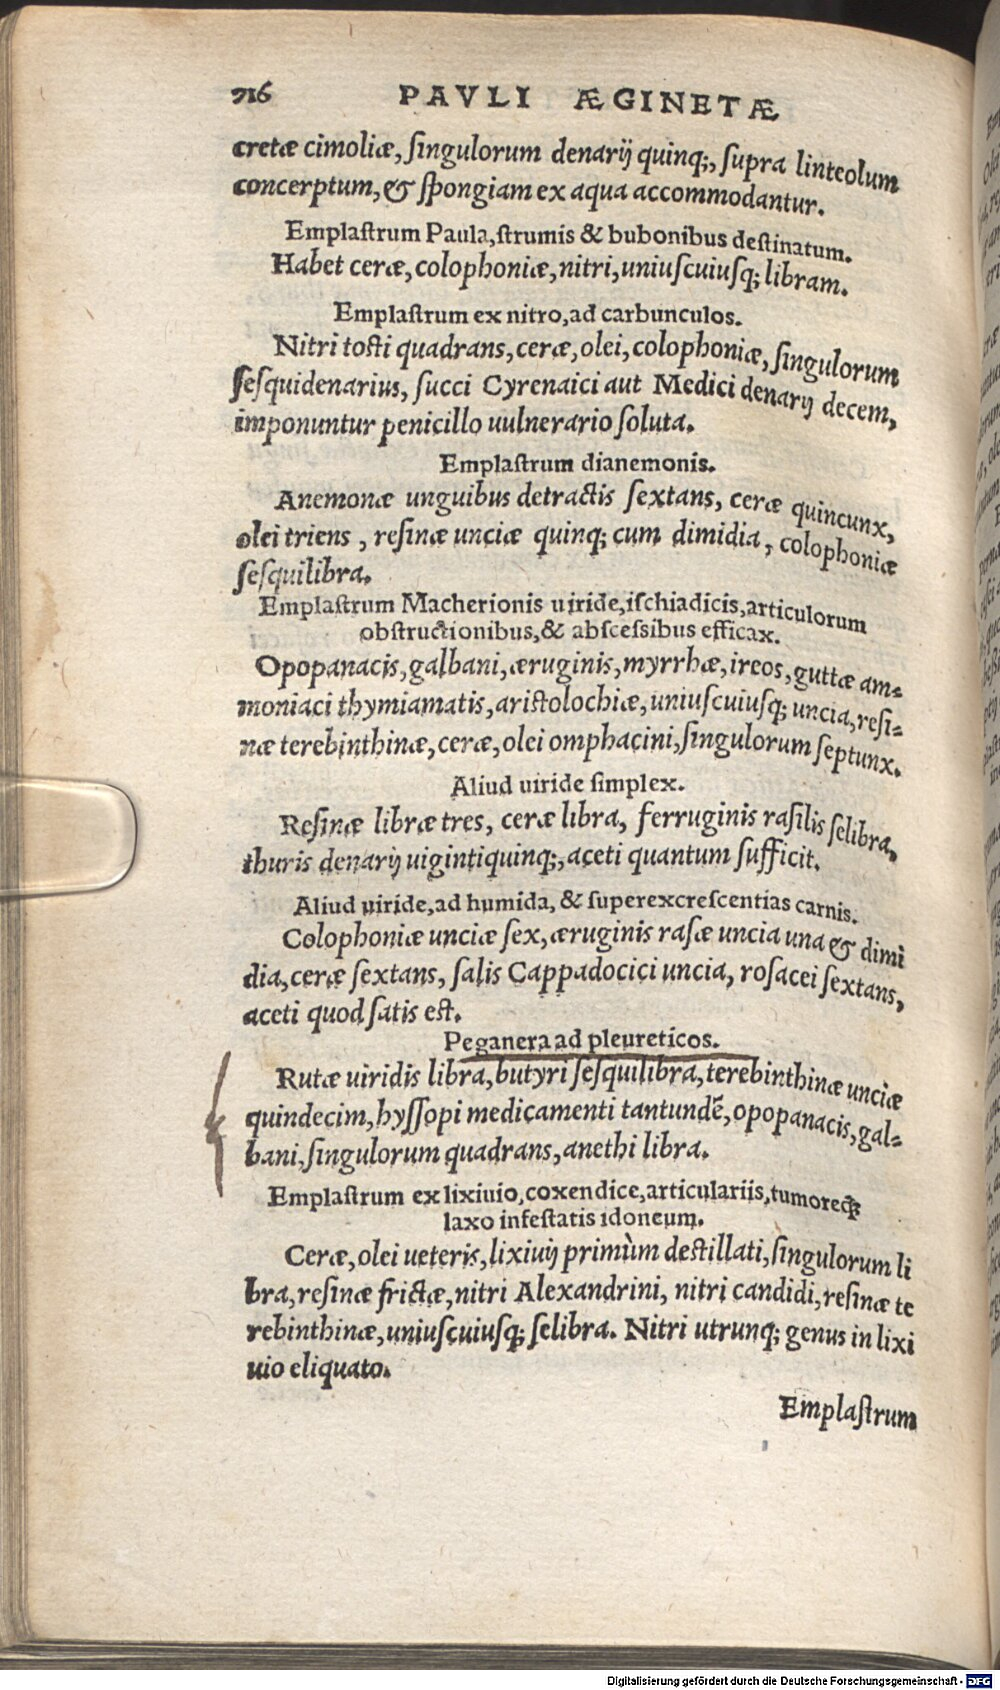 716 PAVLI ÆGINETÆ
cretæ cimoliæ, singulorum denarij quinq;, supra linteolum
concerptum, & spongiam ex aqua accommodantur.
Emplastrum Paula, strumis & bubonibus destinatum.
Habet ceræ, colophoniæ, nitri, uniuscuiusq; libram.
Emplastrum ex nitro, ad carbunculos.
Nitri tosti quadrans, ceræ, olei, colophoniæ, singulorum
sesquidenarius, succi Cyrenaici aut Medici denarij decem,
imponuntur penicillo uulnerario soluta.
Emplastrum dianemonis.
Anemonæ unguibus detractis sextans, ceræ quincunx,
olei triens, resinæ unciæ quinq; cum dimidia, colophoniæ
sesquilibra.
Emplastrum Macherionis uiride, ischiadicis, articulorum
obstructionibus, & abscessibus efficax.
Opopanacis, galbani, æruginis, myrrhæ, ireos, guttæ am=
moniaci thymiamatis, aristolochiæ, uniuscuiusq; uncia, resi=
næ terebinthinæ, ceræ, olei omphacini, singulorum septunx.
Aliud uiride simplex.
Resinæ libræ tres, ceræ libra, ferruginis rasilis selibra,
thuris denarij uigintiquinq;, aceti quantum sufficit.
Aliud uiride, ad humida, & superexcrescentias carnis.
Colophoniæ unciæ sex, æruginis rasæ uncia una & dimi
dia, ceræ sextans, salis Cappadocici uncia, rosacei sextans,
aceti quod satis est.
Peganera ad pleureticos.
Rutæ uiridis libra, butyri sesquilibra, terebinthinæ unciæ
quindecim, hyssopi medicamenti tantundẽ, opopanacis, gal=
bani, singulorum quadrans, anethi libra.
Emplastrum ex lixiuio, coxendice, articulariis, tumoreq;
laxo infestatis idoneum.
Ceræ, olei ueteris, lixiuij primùm destillati, singulorum li
bra, resinæ frictæ, nitri Alexandrini, nitri candidi, resinæ te
rebinthinæ, uniuscuiusq; selibra. Nitri utrunq; genus in lixi
uio eliquato.
Emplastrum
Digitalisierung gefördert durch die Deutsche Forschungsgemeinschaft - DFG